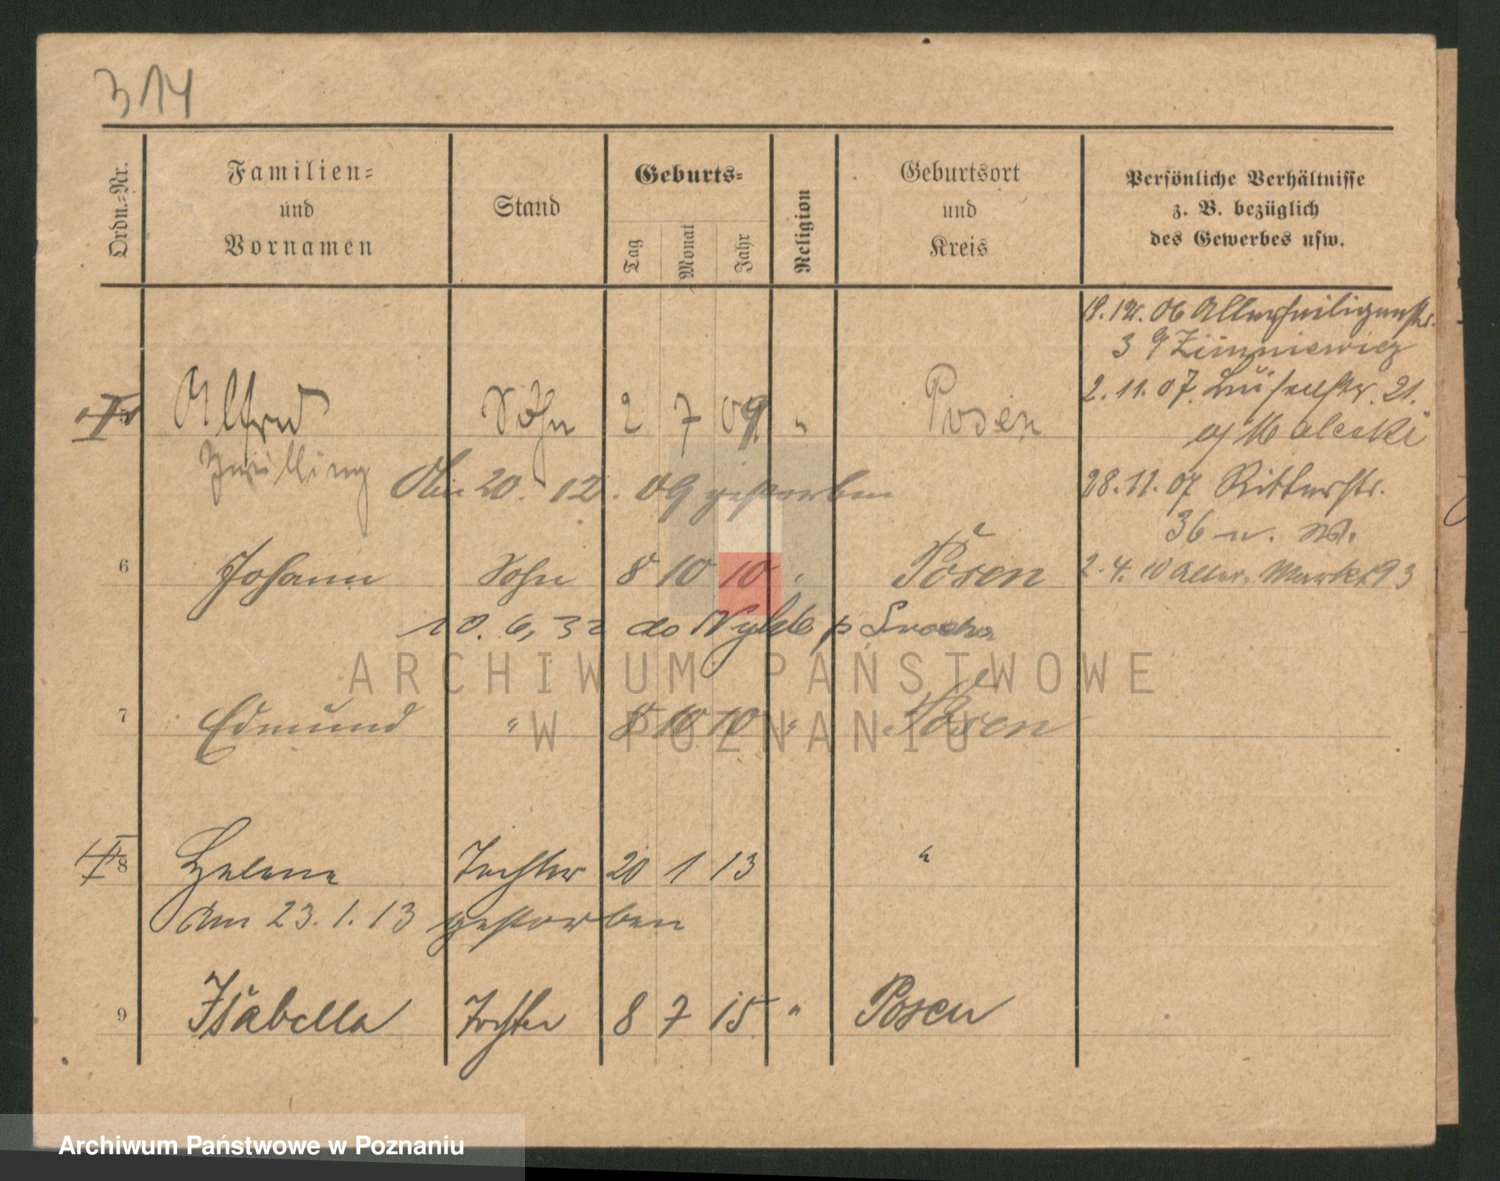 314
Ordn.-Nr.
Familien-
und
Vornamen
Stand
Geburts-
Tag
Monat
Jahr
Religion
Geburtsort
und
Kreis
Persönliche Verhältnisse
z. B. bezüglich
des Gewerbes usw.
19. 12. 06 Allerheiligenstr.
3 Zimniewicz
Alfred Sohn 2 7 09 " Posen
2. 11. 07. Luisenstr. 21.
Zwilling
20. 12. 09 gestorben
28. 11. 07 Ritterstr.
36 n. W.
6 Johann Sohn 8 10 10 " Posen
2. 4. 10 Alter Markt 93
10. 6, 32 do p Sroka
7 Edmund " 8 10 10 " Posen
8 Helene Tochter 20 1 13 "
Am 23. 1. 13 gestorben
9 Isabella Tochter 8 7 15 " Posen
ARCHIWUM PAŃSTWOWE
W POZNANIU
Archiwum Państwowe w Poznaniu